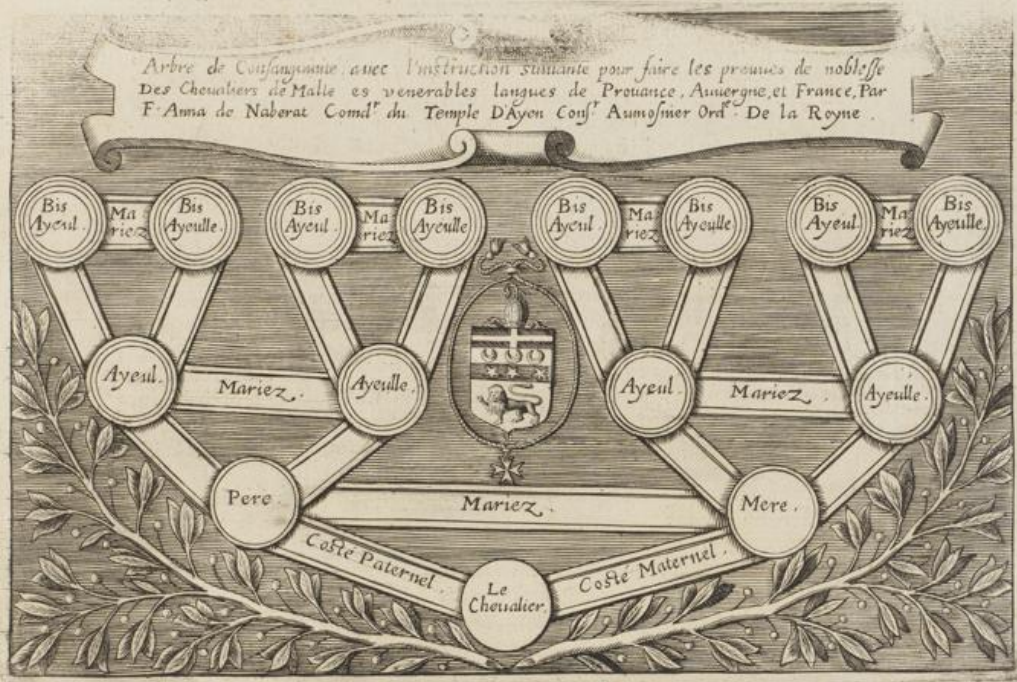 Arbre de Consanguinite avec l'instruction suiuante pour faire les prouues de noblesse
Des Cheualiers de Malte es venerables langues de Prouance, Auuergne, et France, Par
F. Anna de Naberat Comdr. du Temple D'Ayen Consr. Aumosnier Ordre. De la Royne.
Bis Ma Bis Bis Ma Bis Bis Ma Bis Bis Ma Bis
Ayeul. riez Ayeulle. Ayeul. riez Ayeulle Ayeul riez Ayeulle Ayeul riez Ayeulle.
Ayeul. Mariez. Ayeulle. Ayeul. Mariez. Ayeulle.
Pere. Mariez. Mere.
Costé Paternel. Costé Maternel.
Le
Cheualier.